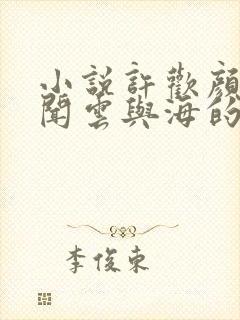 小說許歡顏
聞雲與海的
李俊東